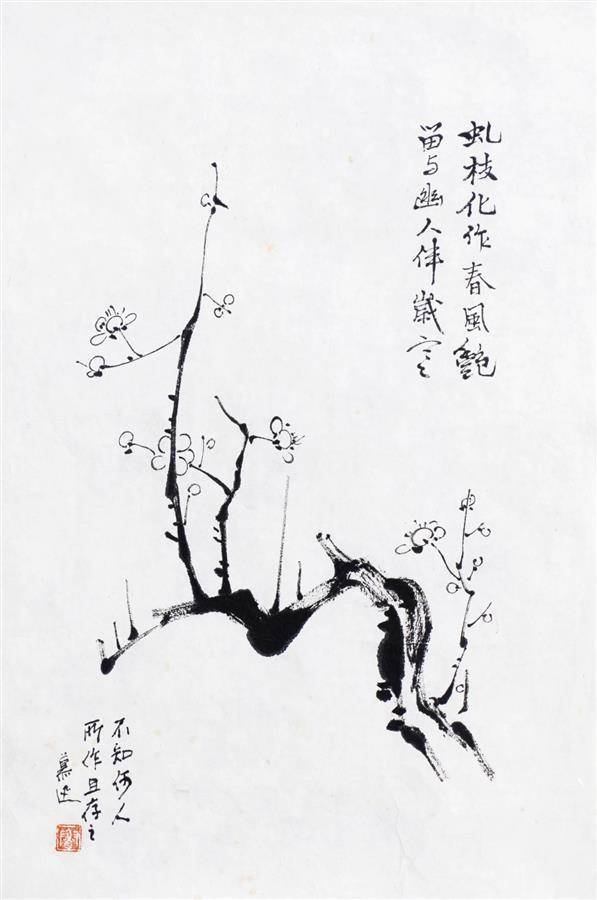 虬枝化作春風艷
留与幽人伴歲寒
不知何人
所作且存之
慕